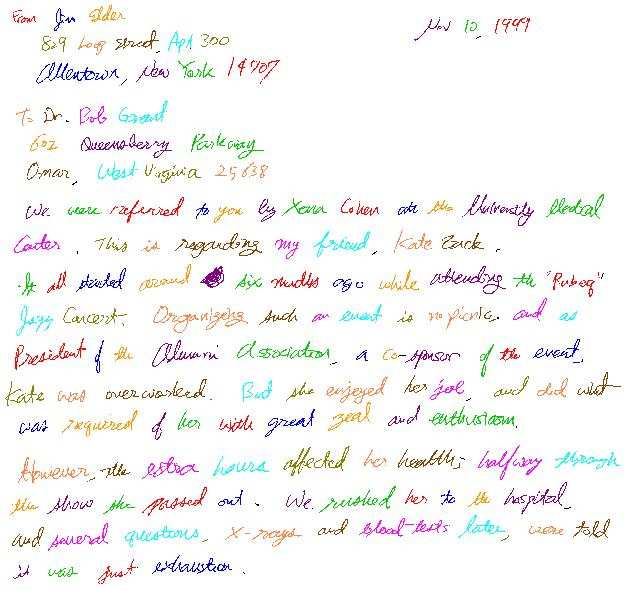 From Jim Elder Nov 10, 1999
829 Loop Street, Apt 300
Allentown, New York 14707
To Dr. Bob Grant
602 Queensberry Parkway
Omar, West Virginia 25638
We were referred to you by Xena Cohen at the University Medical
Center. This is regarding my friend, Kate Zack.
It all started around six months ago while attending the "Rubeq"
Jazz Concert. Organizing such an event is no picnic. and as
President of the Alumni Association, a co-sponsor of the event,
Kate was overworked. But she enjoyed her job, and did what
was required of her with great zeal and enthusiasm.
However, the extra hours affected her health; halfway through
the show she passed out. We rushed her to the hospital,
and several questions, x-rays and blood tests later, were told
it was just exhaustion.